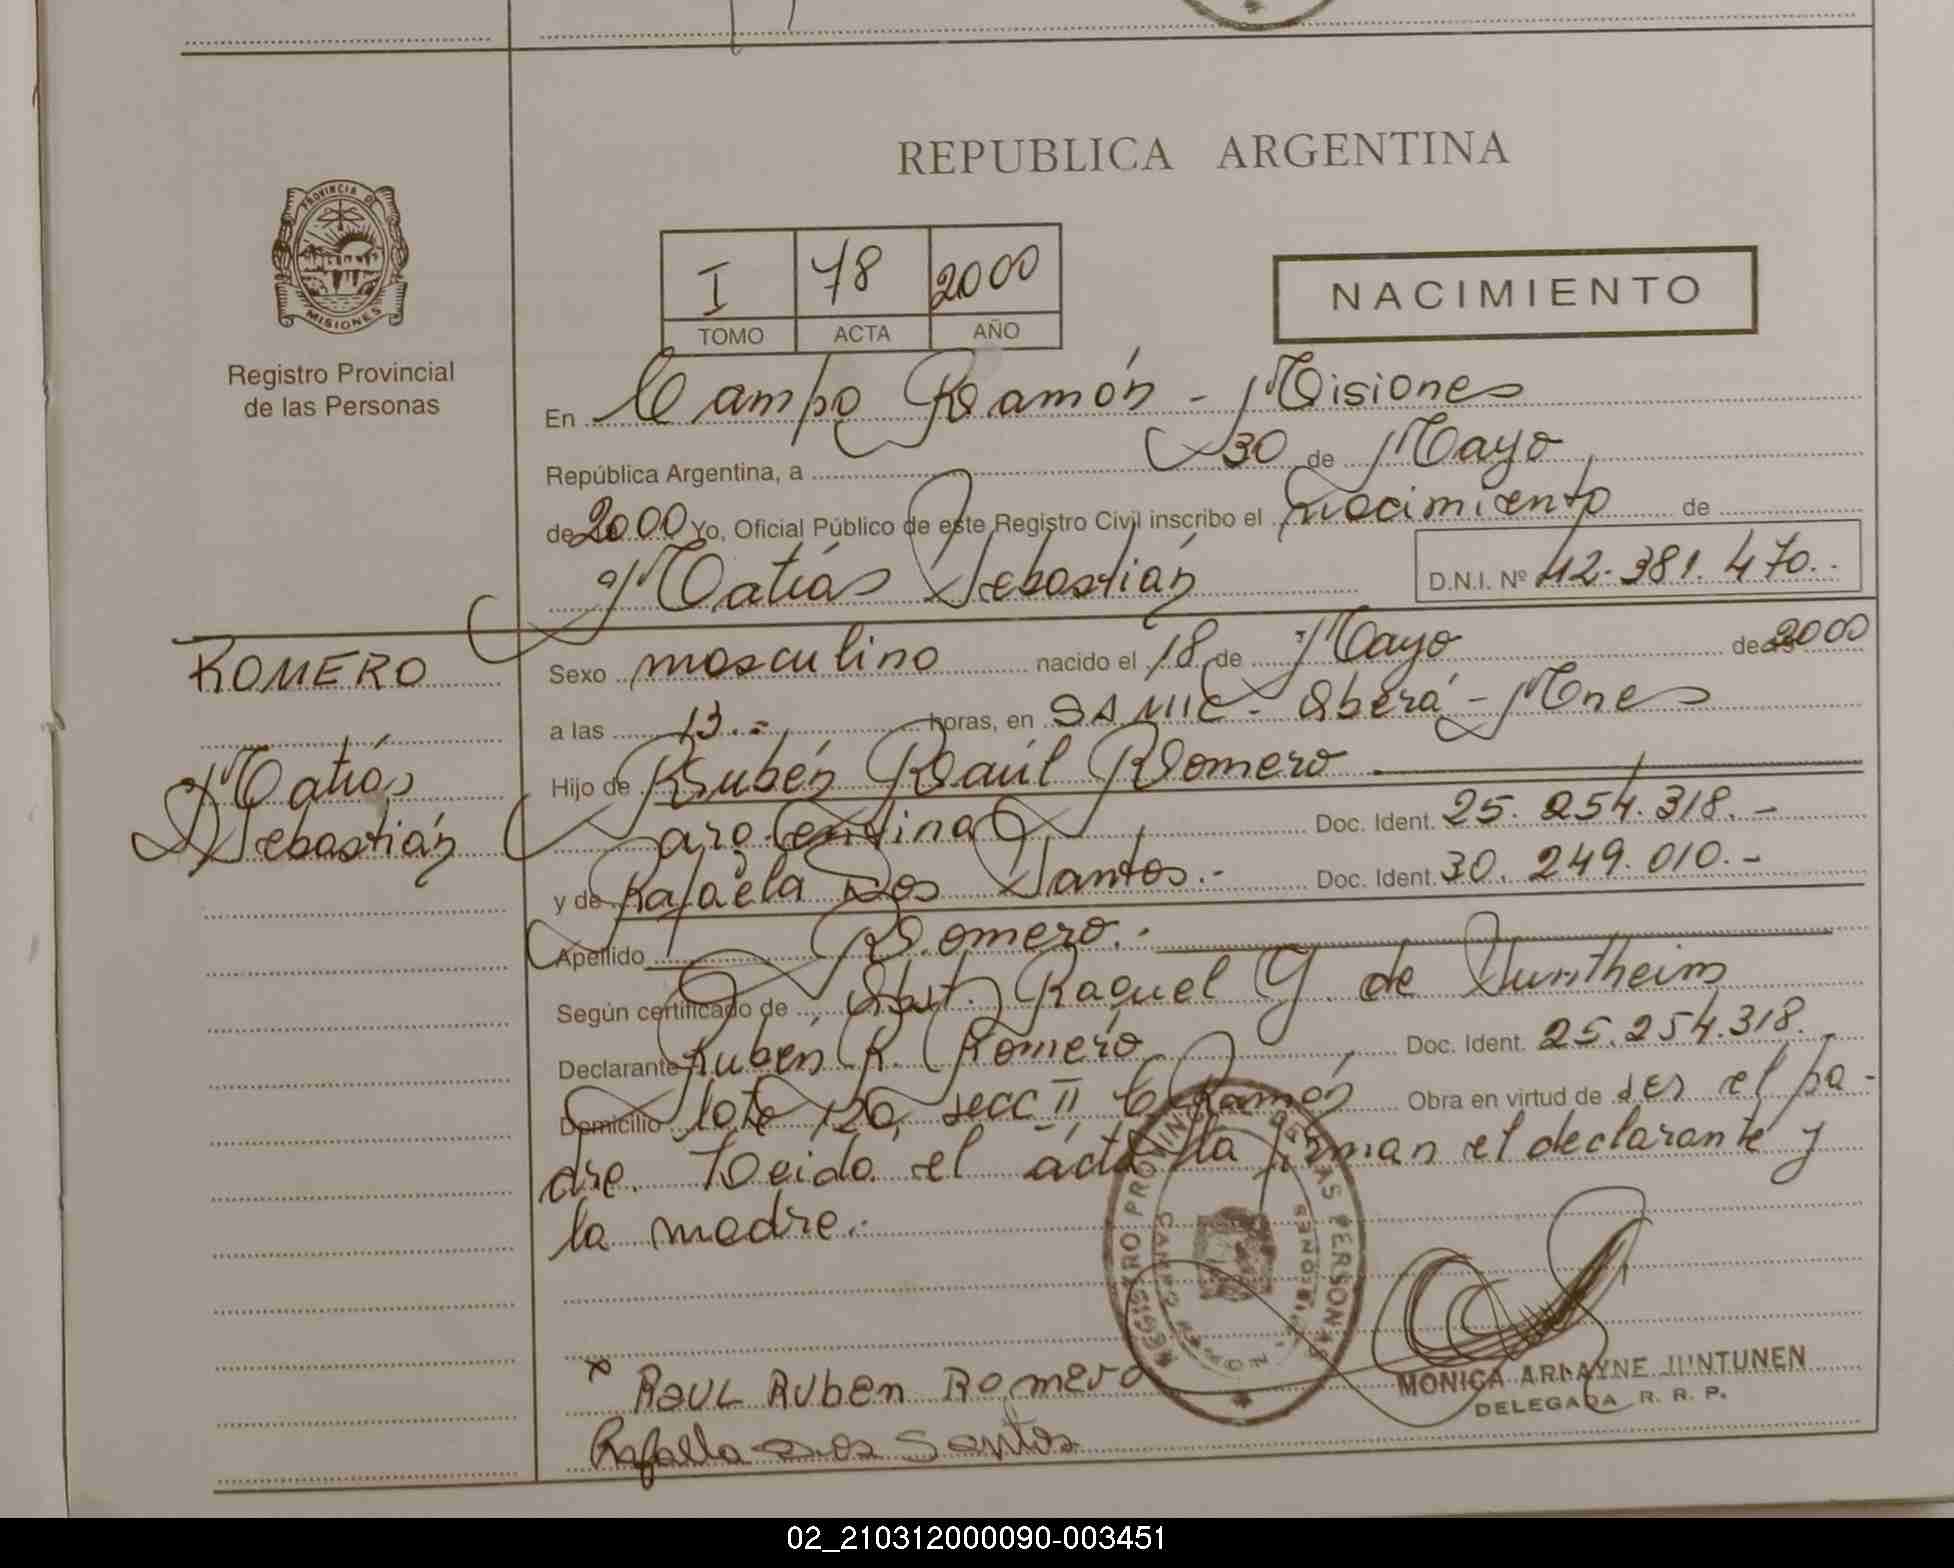 REPUBLICA ARGENTINA
PROVINCIA DE
MISIONES
Registro Provincial
de las Personas
I 78 2000
TOMO ACTA AÑO
NACIMIENTO
En Campo Ramón - Misiones
República Argentina, a 30 de Mayo
de 2000 Yo, Oficial Público de este Registro Civil inscribo el nacimiento de
Matías Sebastián D.N.I. Nº 42.381.470.-
ROMERO
Matías
Sebastián
Sexo masculino nacido el 18 de Mayo de 2000
a las 13.- horas, en SAMIC - Oberá - Mnes
Hijo de Rubén Raúl Romero
argentina Doc. Ident. 25.254.318.-
y de Rafaela Dos Santos.- Doc. Ident. 30.249.010.-
Apellido Romero.-
Según certificado de Obst. Raquel G. de
Declarante Rubén R. Romero Doc. Ident. 25.254.318.
Domicilio lote 120, secc II C. Ramón Obra en virtud de ser el pa-
dre. Leida el acta la firman el declarante y
la madre.-
REGISTRO PROVINCIAL DE LAS PERSONAS
CAMPO RAMON
MISIONES
x RAUL RUBEN ROMERO
Rafaela Dos Santos
MONICA ARLAYNE JUNTUNEN
DELEGADA R. R. P.
02_210312000090-003451